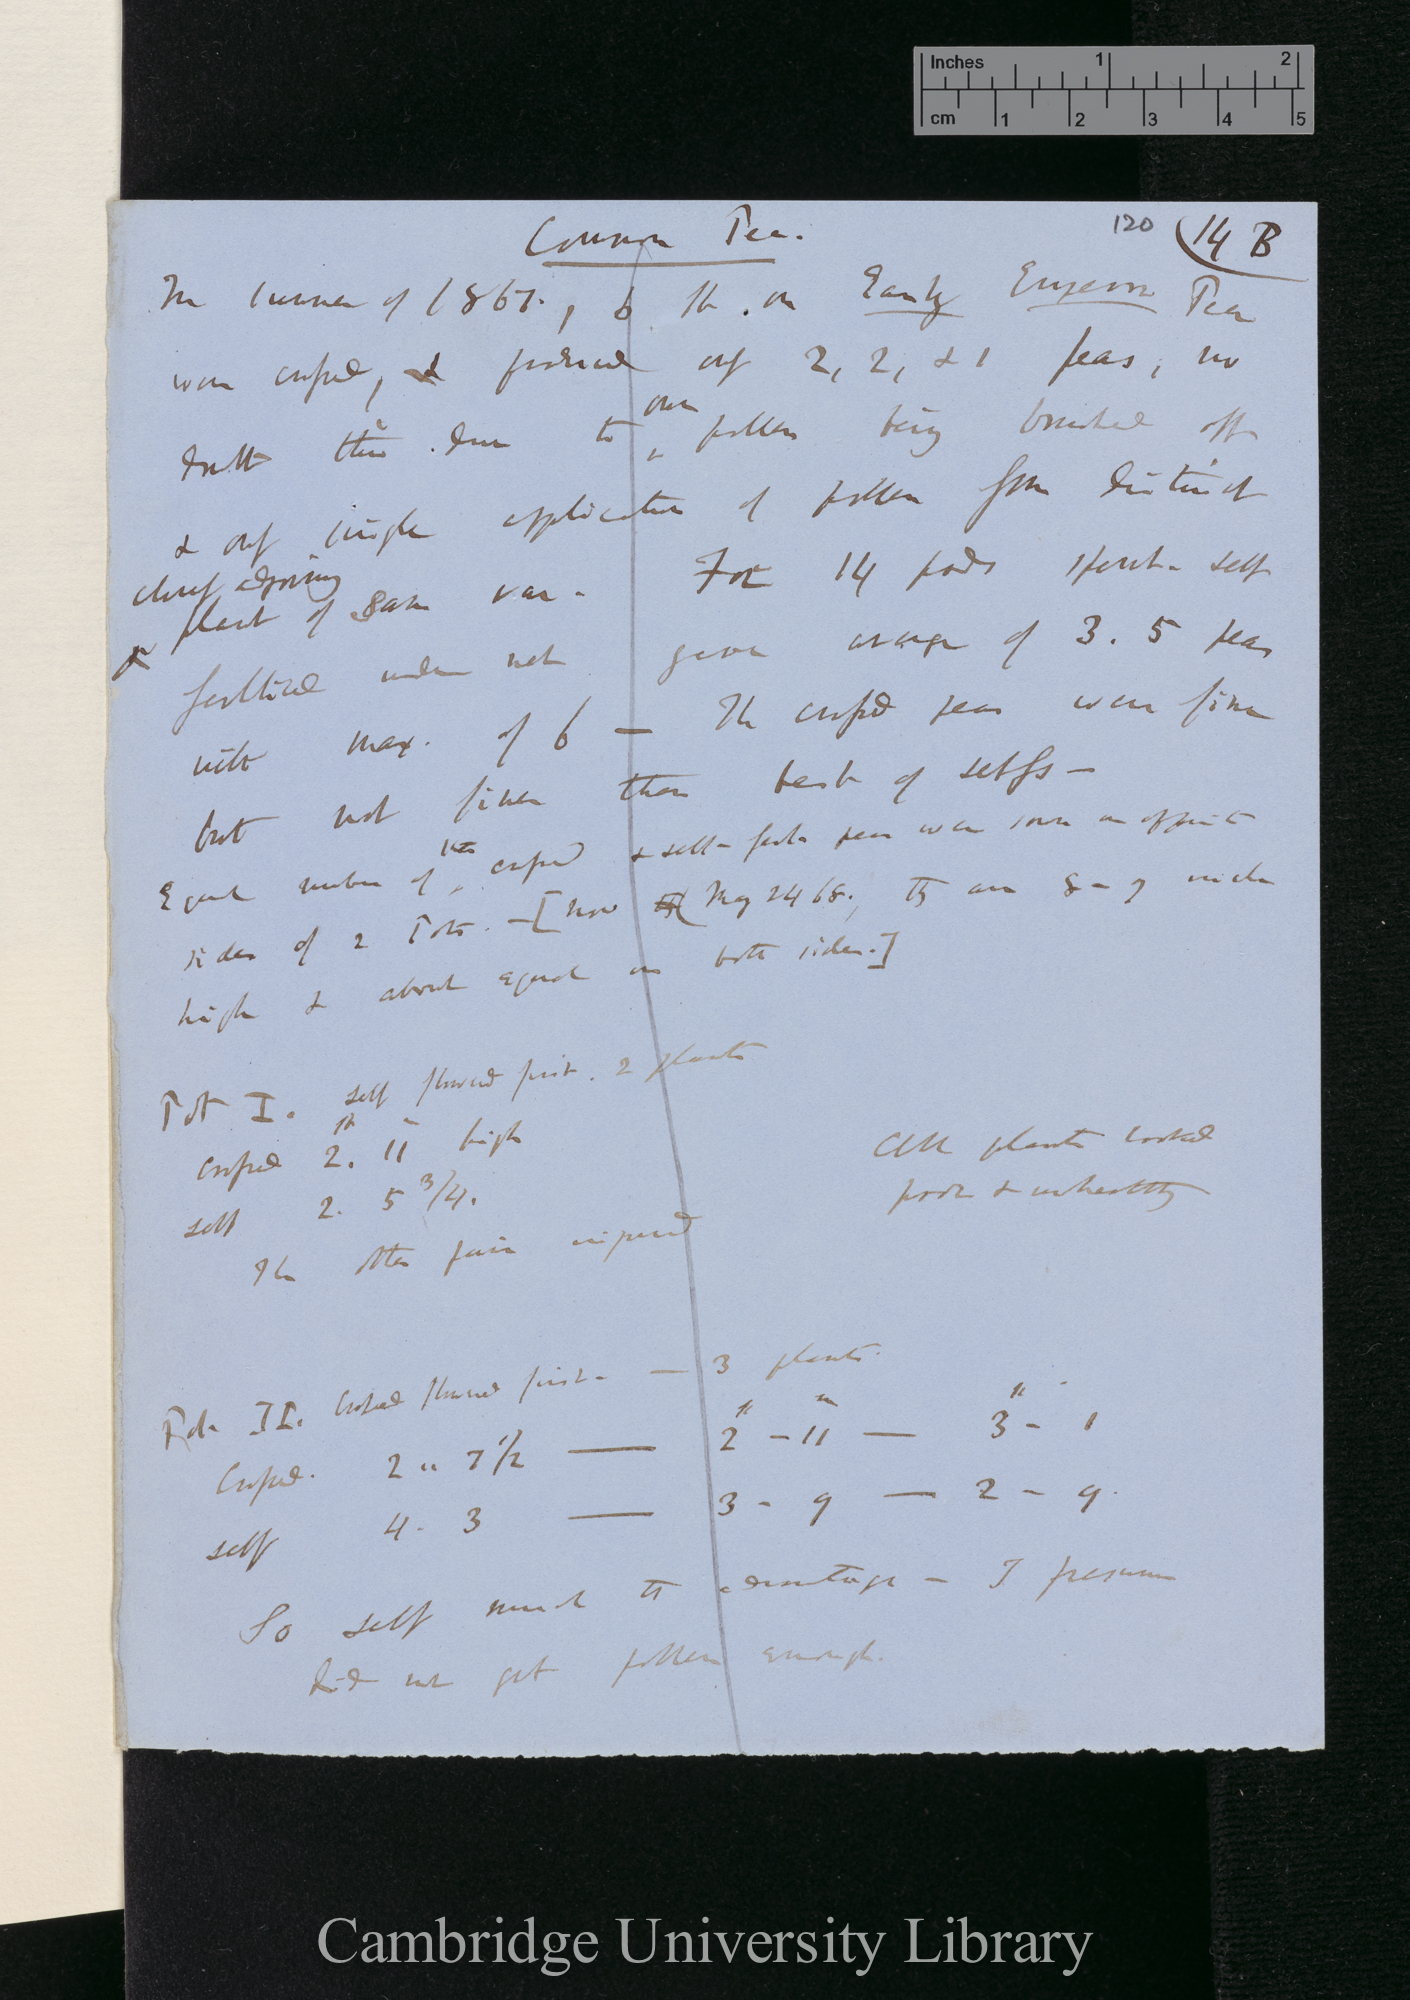 Inches 1 2
cm 1 2 3 4 5
Common Pea.
120 14 B
In summer of 1867, 6 fl. on Early Emperor Pea
were crossed, & produced only 2, 2, & 1 peas, no
doubt this due to own pollen being brushed off
& only single application of pollen from distinct
closely adjoining
plant of same var. For 14 pods spont. self
fertilised under net gave average of 3.5 peas
with max. of 6 — The crossed peas were fine
but not finer than best of selfs —
Equal number of crossed & self-fert. peas were sown on opposite
sides of 2 Pots. — [Now (May 24 68., they are 8-9 inches
high & about equal on both sides.]
Pot I. self flowered first. 2 plants
Crossed 2. 11 high
self 2. 5 3/4.
The other pair injured
All plants looked
poor & unhealthy
Pot II. Crossed flowered first — 3 plants.
Crossed. 2 " 7 1/2 — 2 - 11 — 3 - 1
self 4. 3 — 3 - 9 — 2 - 9.
So self much the advantage — I presume
did not get pollen enough.
Cambridge University Library